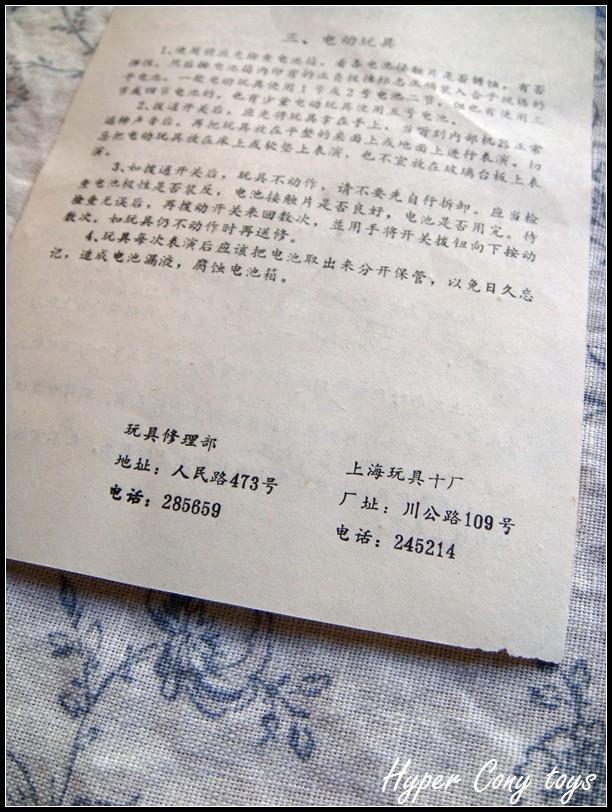 三、电动玩具
1、使用时应先检查电池箱，看各电池接触片是否锈蚀，有否
弹性，然后按电池箱内印有的正负极性标志正确装入合乎规格的
干电池。一般电动玩具使用1号或2号电池二节，但也有使用三
节或四节电池的，也有少量电动玩具使用五号电池。
2、拨通开关后，应先将玩具拿在手上，当听到内部机器正常
运转声音后，再把玩具放在平整的桌面上或地面上进行表演。切
忌把电动玩具放在床上或软垫上表演，也不宜放在玻璃台板上表
演。
3、如拨通开关后，玩具不动作，请不要先自行拆卸。应当检
查电池极性是否装反，电池接触片是否良好，电池是否用完。待
检查无误后，再拨动开关来回数次，并用手将开关拨钮向下按动
数次。如玩具仍不动作时再送修。
4、玩具每次表演后应该把电池取出来分开保管，以免日久忘
记，造成电池漏液，腐蚀电池箱。
玩具修理部
地址：人民路473号
电话：285659
上海玩具十厂
厂址：川公路109号
电话：245214
Hyper Cony toys